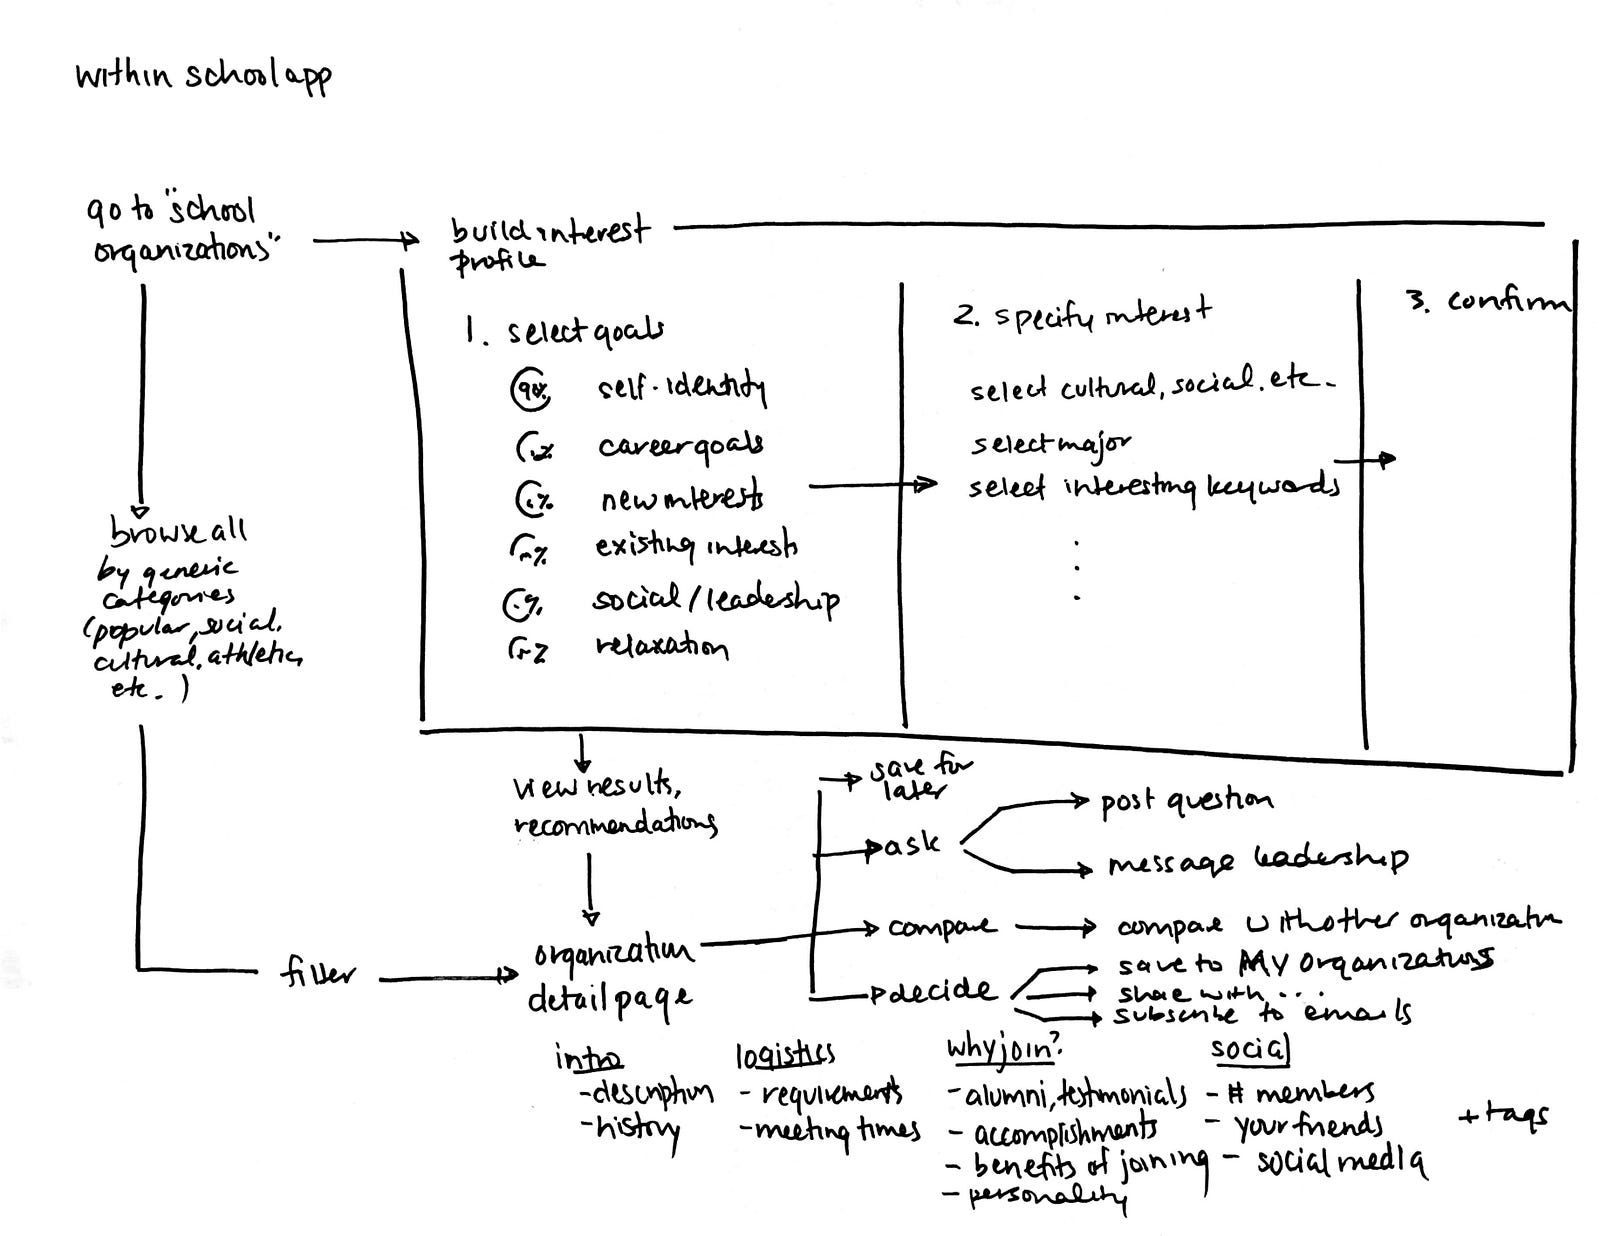 within school app
go to "school
organizations"
build interest
profile
1. select goals
90% self-identity
% career goals
% new interests
% existing interests
% social/leadership
% relaxation
2. specify interest
select cultural, social. etc.
select major
select interesting keywords
3. confirm
browse all
by generic
categories
(popular, social,
cultural, athletic,
etc.)
view results,
recommendations
filter
organization
detail page
save for
later
ask
post question
message leadership
compare
compare with other organization
decide
save to My organizations
share with...
subscribe to emails
intro
- description
- history
logistics
- requirements
- meeting times
why join?
- alumni, testimonials
- accomplishments
- benefits of joining
- personality
social
- # members
- your friends
- social media
+ tags